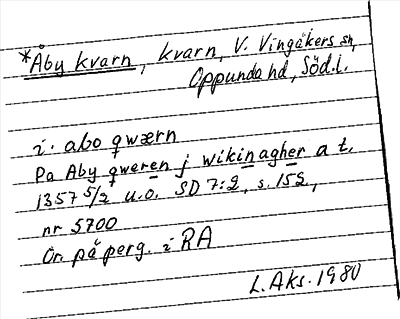 *Åby kvarn, kvarn, V. Vingåkers sn,
Oppunda hd, Söd.l.
i. abo qwærn
Pa Aby qweren j wikinagher a t.
1357 5/2 u.o. SD 7:2, s. 152,
nr 5700
Or. på perg. i RA
L. Aks. 1980